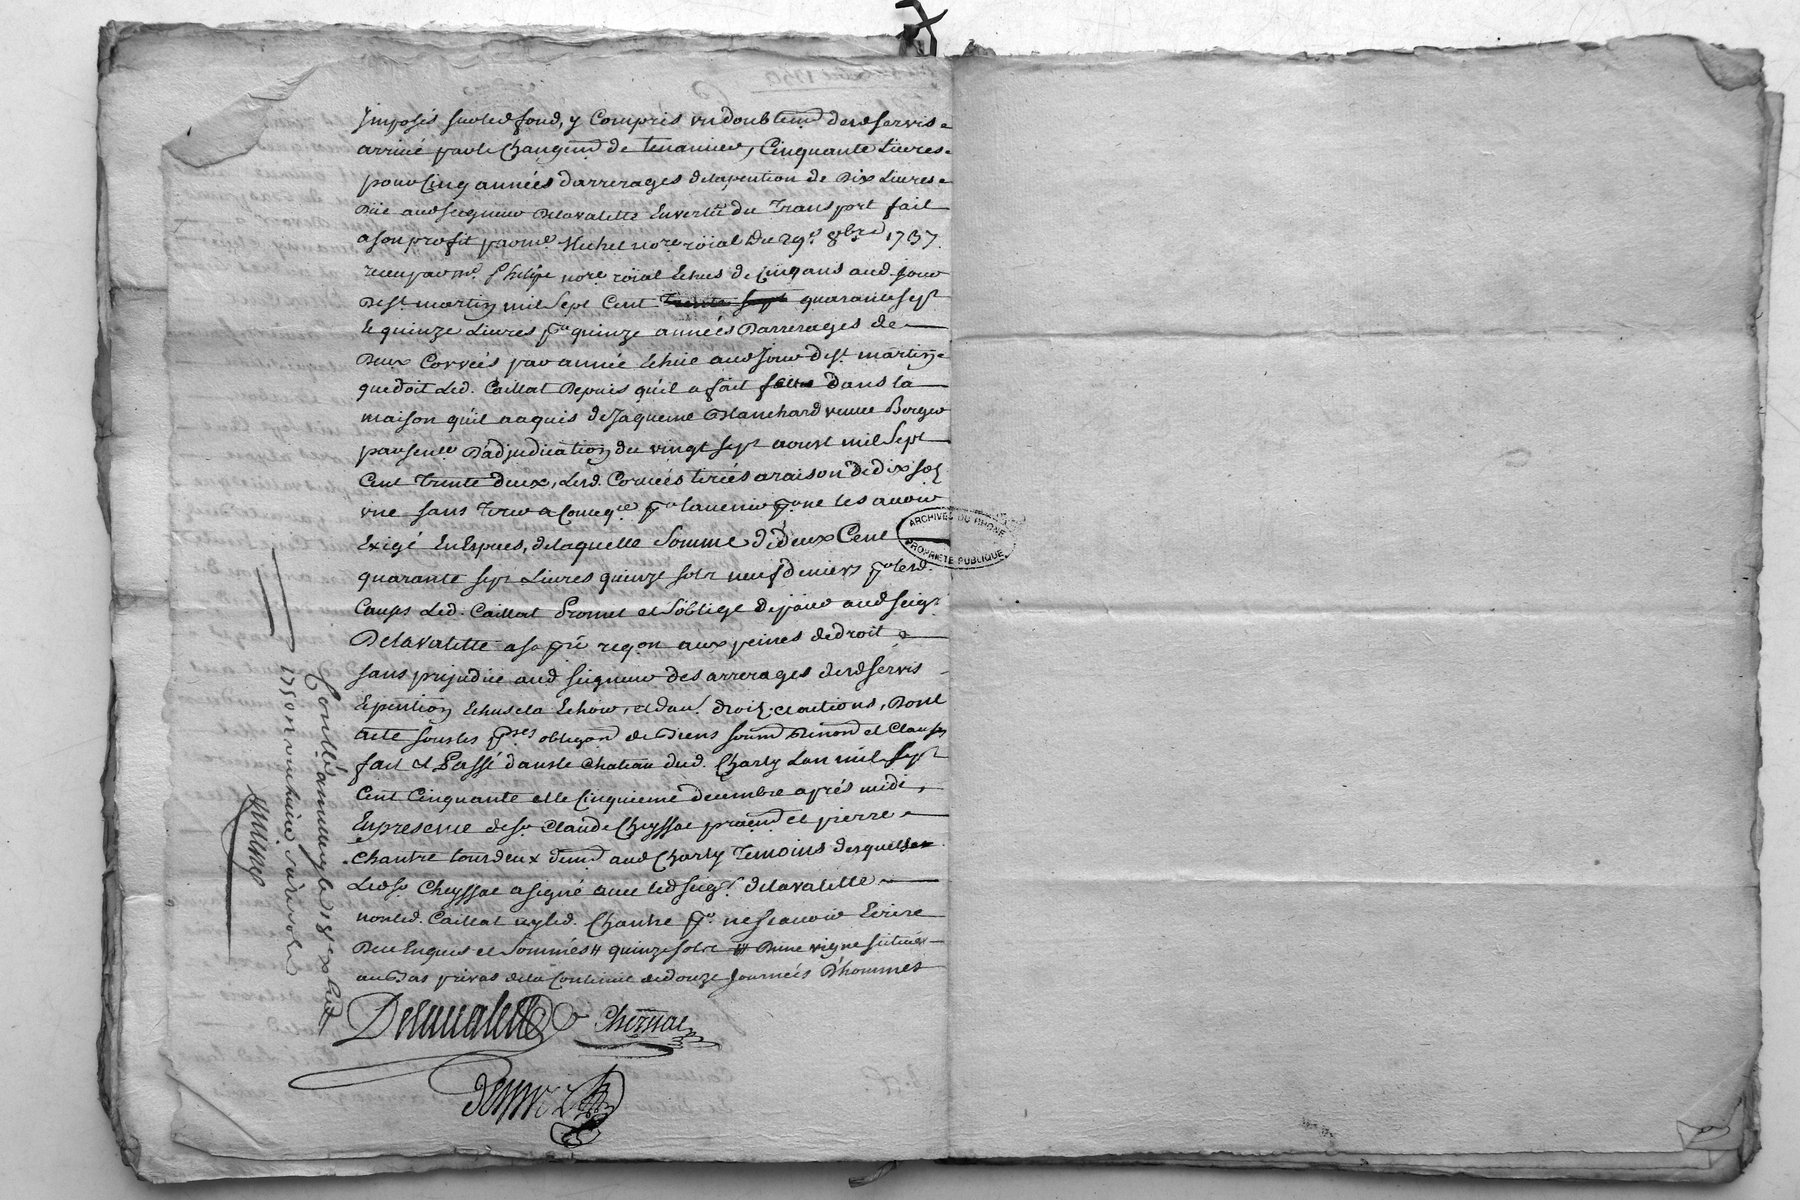 Imposés surled fond, y Compris un doublemt desd servis
arrivé par le Changemt de tenancier, Cinquante Livres
pour Cinq années d'arrerages delapention de Dix Livres
Düe aud seigneur Delavalette Envertu du Transport fait
a son profit par me Michel nore röial Du 29e 8bre 1737
receu par me philipe nore röial Echus de Cinq ans aud jour
De st martin mil sept Cent trente sept quarante sept
Et quinze Livres pr quinze années Darrerages de
Deux Corvées par année Echüe aud Jour de st martin
que doit Led. Caillat Depuis qu'il a fait dans la
maison qu'il a aquis de Jaqueme Blanchard veuve Berger
par sence D'adjudication du vingt sept aoust mil Sept
Cent Trente deux, Lesd. Corvées tirées a raison de dix sols
une sans Tirer a Conseqce pr lavenir pr ne les avoir
Exigé En Espces, de laquelle Somme de deux Cent
quarante sept Livres quinze sols neuf deniers pr lesd.
Causes Led. Caillat Promet et s'oblige de payer aud seigr
Delavalette a sa pre reqon aux peines de droit
sans prejudice aud seigneur des arrerages desd servis
Et pention Echus et a Echoir, et d'aus droits et actions, Dont
acte sous les pses obligaons de Biens soumons Renons et Clauses
fait et Passé dans le Chateau dud. Charly Lan mil sept
Cent Cinquante et le Cinquieme decembre aprés midi,
En presence de sr Claude Cheyssac et pierre
Chantre tous deux demt aud Charly Temoins desquels
Led sr Cheyssac a signé avec led seigr delavalette
non led. Caillat ny led. Chantre pr ne scavoir Ecrire
De ce Enquis et Sommés # quinze sols # Dune vigne scituée
au Bas privas dela Contenüe de douze Journées D'hommes
Delavalette
Cheyssac
Conllé a
1750
ARCHIVES DU RHONE
PROPRIÉTÉ PUBLIQUE